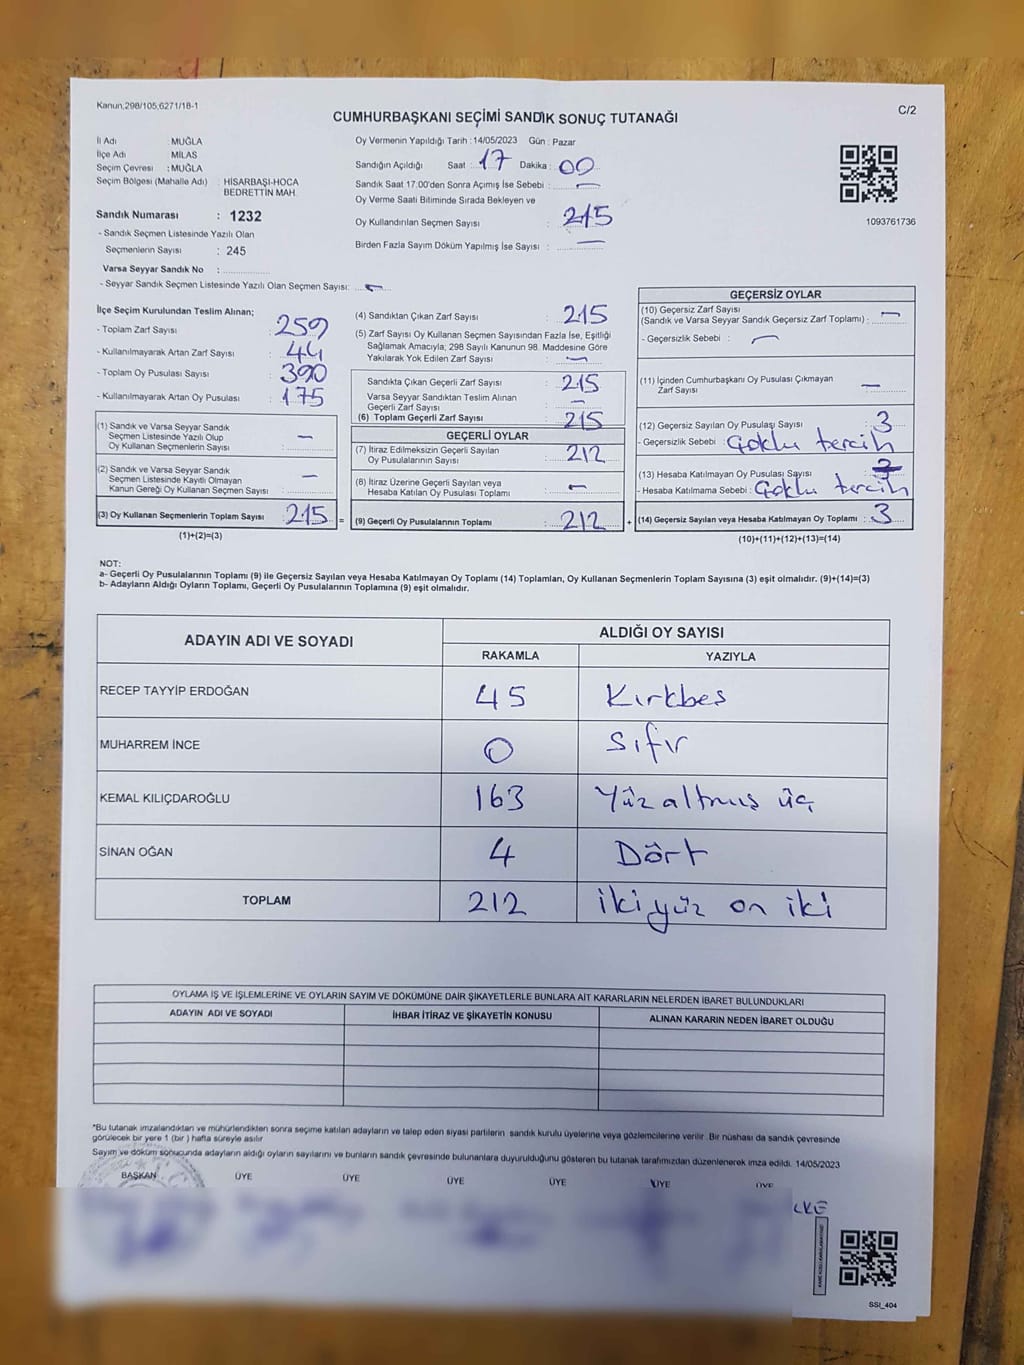 Kanun,298/105,6271/18-1
C/2
CUMHURBAŞKANI SEÇİMİ SANDIK SONUÇ TUTANAĞI
İl Adı : MUĞLA
İlçe Adı : MİLAS
Seçim Çevresi : MUĞLA
Seçim Bölgesi (Mahalle Adı) : HİSARBAŞI-HOCA
BEDRETTİN MAH.
Sandık Numarası : 1232
- Sandık Seçmen Listesinde Yazılı Olan
Seçmenlerin Sayısı : 245
Varsa Seyyar Sandık No :
- Seyyar Sandık Seçmen Listesinde Yazılı Olan Seçmen Sayısı: -
Oy Vermenin Yapıldığı Tarih : 14/05/2023 Gün : Pazar
Sandığın Açıldığı Saat : 17 Dakika : 00
Sandık Saat 17.00'den Sonra Açımış İse Sebebi : -
Oy Verme Saati Bitiminde Sırada Bekleyen ve
Oy Kullandırılan Seçmen Sayısı : 215
Birden Fazla Sayım Döküm Yapılmış İse Sayısı : -
1093761736
İlçe Seçim Kurulundan Teslim Alınan;
- Toplam Zarf Sayısı : 259
- Kullanılmayarak Artan Zarf Sayısı : 44
- Toplam Oy Pusulası Sayısı : 390
- Kullanılmayarak Artan Oy Pusulası : 175
(1) Sandık ve Varsa Seyyar Sandık
Seçmen Listesinde Yazılı Olup
Oy Kullanan Seçmenlerin Sayısı : -
(2) Sandık ve Varsa Seyyar Sandık
Seçmen Listesinde Kayıtlı Olmayan
Kanun Gereği Oy Kullanan Seçmen Sayısı : -
(3) Oy Kullanan Seçmenlerin Toplam Sayısı : 215 =
(1)+(2)=(3)
(4) Sandıktan Çıkan Zarf Sayısı : 215
(5) Zarf Sayısı Oy Kullanan Seçmen Sayısından Fazla İse, Eşitliği
Sağlamak Amacıyla; 298 Sayılı Kanunun 98. Maddesine Göre
Yakılarak Yok Edilen Zarf Sayısı : -
Sandıkta Çıkan Geçerli Zarf Sayısı : 215
Varsa Seyyar Sandıktan Teslim Alınan
Geçerli Zarf Sayısı : -
(6) Toplam Geçerli Zarf Sayısı : 215
GEÇERLİ OYLAR
(7) İtiraz Edilmeksizin Geçerli Sayılan
Oy Pusulalarının Sayısı : 212
(8) İtiraz Üzerine Geçerli Sayılan veya
Hesaba Katılan Oy Pusulası Toplamı : -
(9) Geçerli Oy Pusulalarının Toplamı : 212 +
GEÇERSİZ OYLAR
(10) Geçersiz Zarf Sayısı
(Sandık ve Varsa Seyyar Sandık Geçersiz Zarf Toplamı) : -
- Geçersizlik Sebebi : -
(11) İçinden Cumhurbaşkanı Oy Pusulası Çıkmayan
Zarf Sayısı : -
(12) Geçersiz Sayılan Oy Pusulası Sayısı : 3
- Geçersizlik Sebebi : Çoklu tercih
(13) Hesaba Katılmayan Oy Pusulası Sayısı :
- Hesaba Katılmama Sebebi : Çoklu tercih
(14) Geçersiz Sayılan veya Hesaba Katılmayan Oy Toplamı : 3
(10)+(11)+(12)+(13)=(14)
NOT:
a- Geçerli Oy Pusulalarının Toplamı (9) ile Geçersiz Sayılan veya Hesaba Katılmayan Oy Toplamı (14) Toplamları, Oy Kullanan Seçmenlerin Toplam Sayısına (3) eşit olmalıdır. (9)+(14)=(3)
b- Adayların Aldığı Oyların Toplamı, Geçerli Oy Pusulalarının Toplamına (9) eşit olmalıdır.
ADAYIN ADI VE SOYADI
ALDIĞI OY SAYISI
RAKAMLA YAZIYLA
RECEP TAYYİP ERDOĞAN 45 Kırkbeş
MUHARREM İNCE 0 Sıfır
KEMAL KILIÇDAROĞLU 163 Yüzaltmış üç
SİNAN OĞAN 4 Dört
TOPLAM 212 ikiyüz on iki
OYLAMA İŞ VE İŞLEMLERİNE VE OYLARIN SAYIM VE DÖKÜMÜNE DAİR ŞİKAYETLERLE BUNLARA AİT KARARLARIN NELERDEN İBARET BULUNDUKLARI
ADAYIN ADI VE SOYADI İHBAR İTİRAZ VE ŞİKAYETİN KONUSU ALINAN KARARIN NEDEN İBARET OLDUĞU
*Bu tutanak imzalandıktan ve mühürlendikten sonra seçime katılan adayların ve talep eden siyasi partilerin sandık kurulu üyelerine veya gözlemcilerine verilir. Bir nüshası da sandık çevresinde
görülecek bir yere 1 (bir) hafta süreyle asılır
Sayım ve döküm sonucunda adayların aldığı oyların sayılarını ve bunların sandık çevresinde bulunanlara duyurulduğunu gösteren bu tutanak tarafımızdan düzenlenerek imza edildi. 14/05/2023
BAŞKAN ÜYE ÜYE ÜYE ÜYE ÜYE ÜYE
LKE
SSI_404